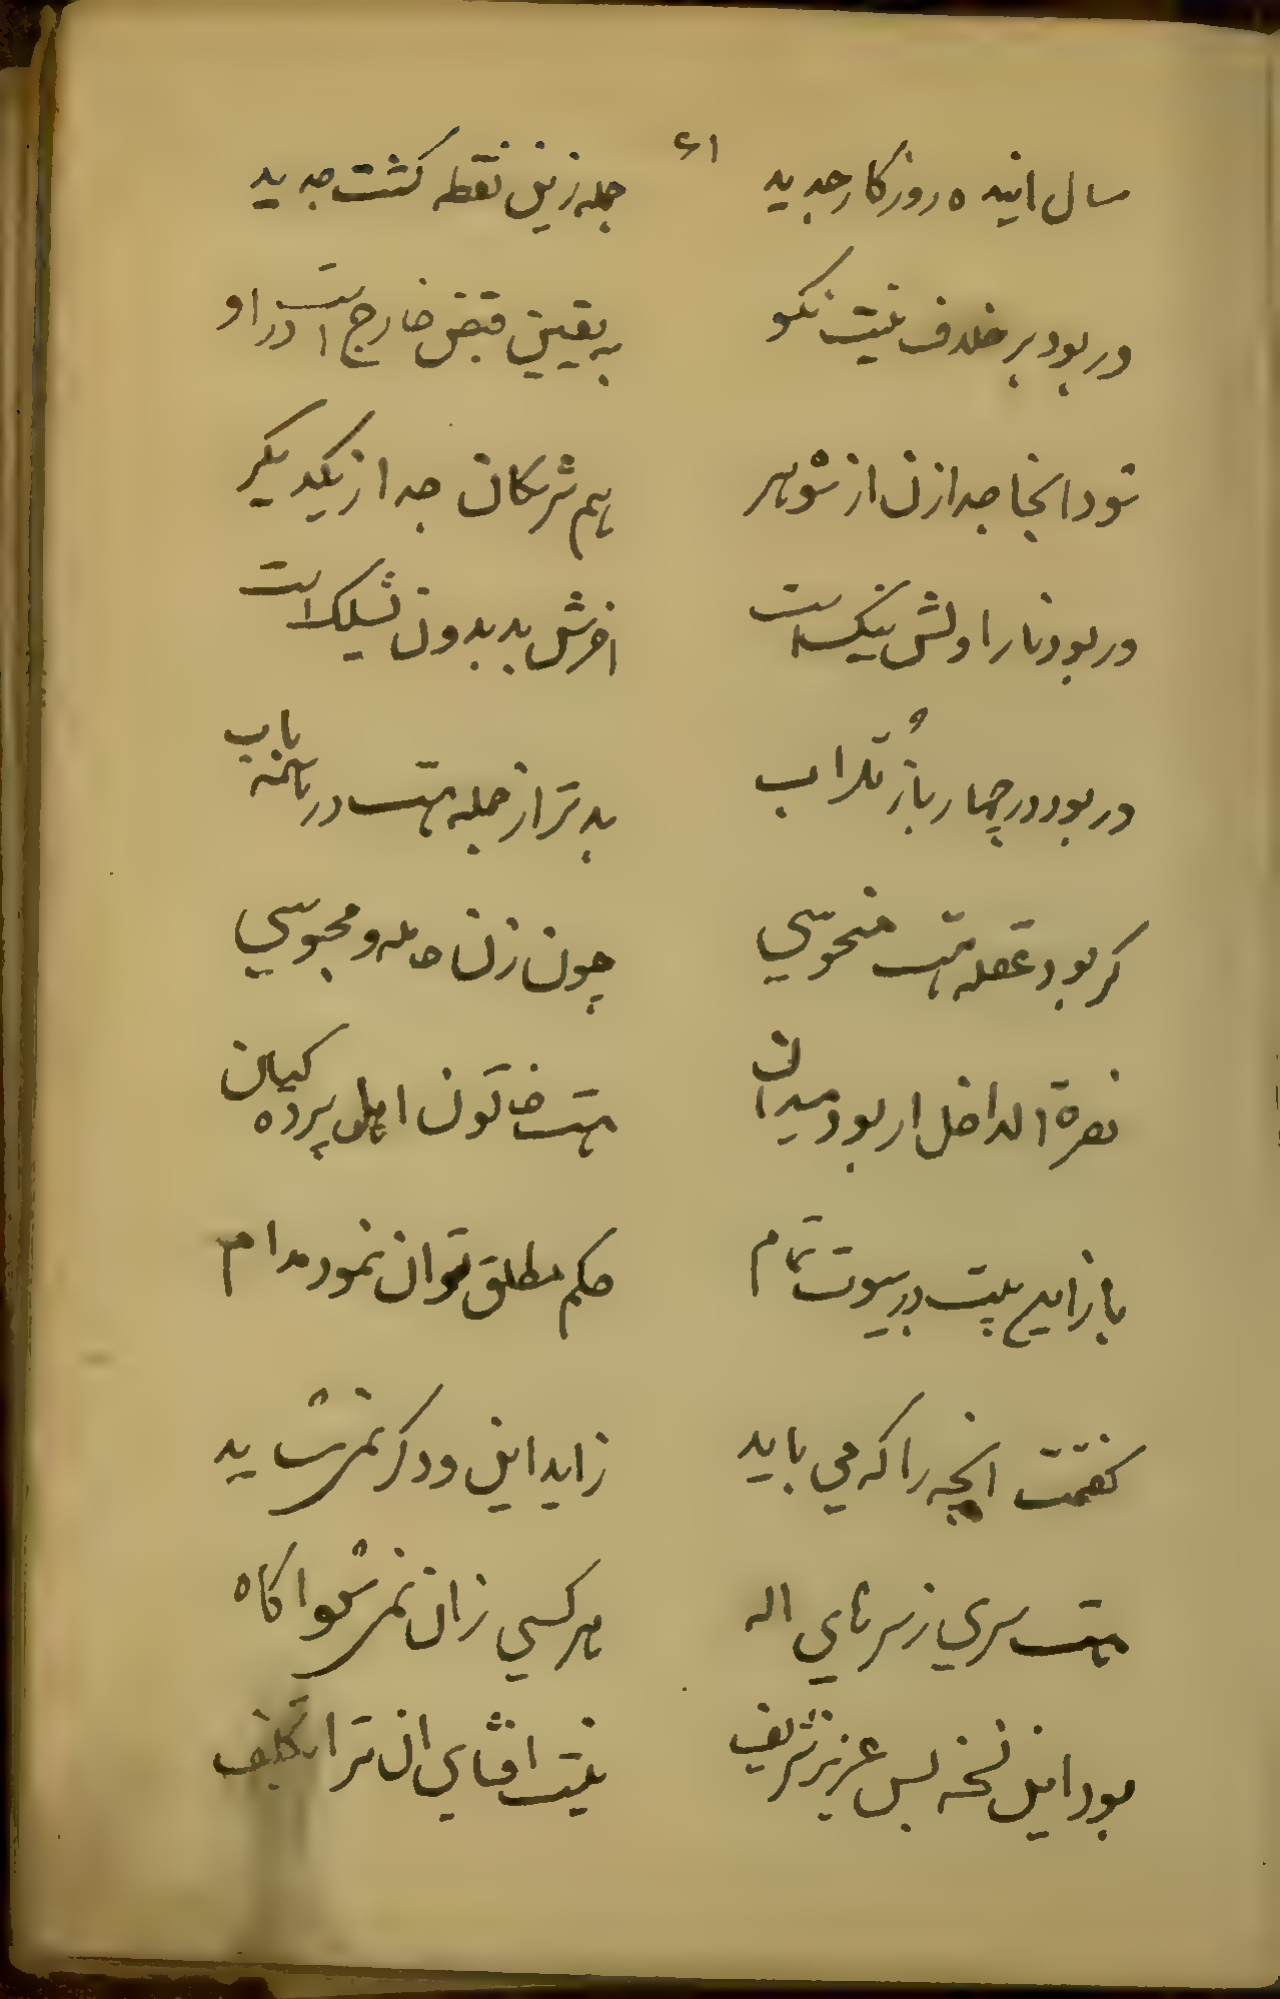 ۶۱
سال اینده روزکار جدید جمله زین نقطه کشت جدید
ور بود بر خلاف نیست نکو به یقین قبض خارج است در او
شود انجا جدا زن از شوهر هم شریکان جدا ز یکدیکر
ور بود نار اولش نیک است اخرش بد بدون تشکیک است
ور بود در چهار باز تراب بدتر از جمله هست در باب
کر بود عقله هست منحوسی چون زن حامله و محبوسی
نصرة الداخل ار بود میدان هست خاتون اهل پرده کیان
باز این بیت در بیوت تمام حکم مطلق توان نمود مدام
کفتمت انچه را که می باید زاید این ودکر نمی شاید
هست سری ز سرهای اله هر کسی زان نمی شود اکاه
بود این نسخه بس عزیز شریف نیست افشای ان ترا تکلیف